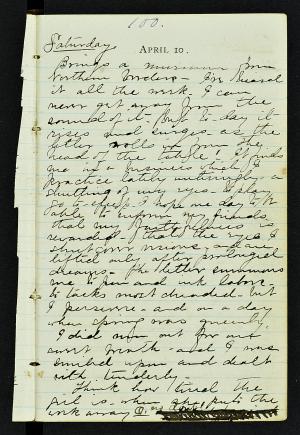 100.
Saturday
APRIL 10.
Brings a murmur from
Northern Borders - I've heard
it all the week. I can
never get away from the
sound of it - But to-day it
rises and surges as the
letter rolls in from the
head of the table. It finds
me in a business that I
practice lately unceasingly a
shutting of my eyes to play
go to sleep. I hope one day to be
able to inform my friends
that my is
rewarded that the eyes
shut on visions and are
lifted only after prolonged
dreams. The letter summons
me to pen and ink labor
to tasks most dreaded. but
I persevere - and on a day
when spring was greenly
I did run out for one
sweet breath - and I was
smiled upon and dealt
with tenderly.
Think how tired the
girl is when she puts the
ink away